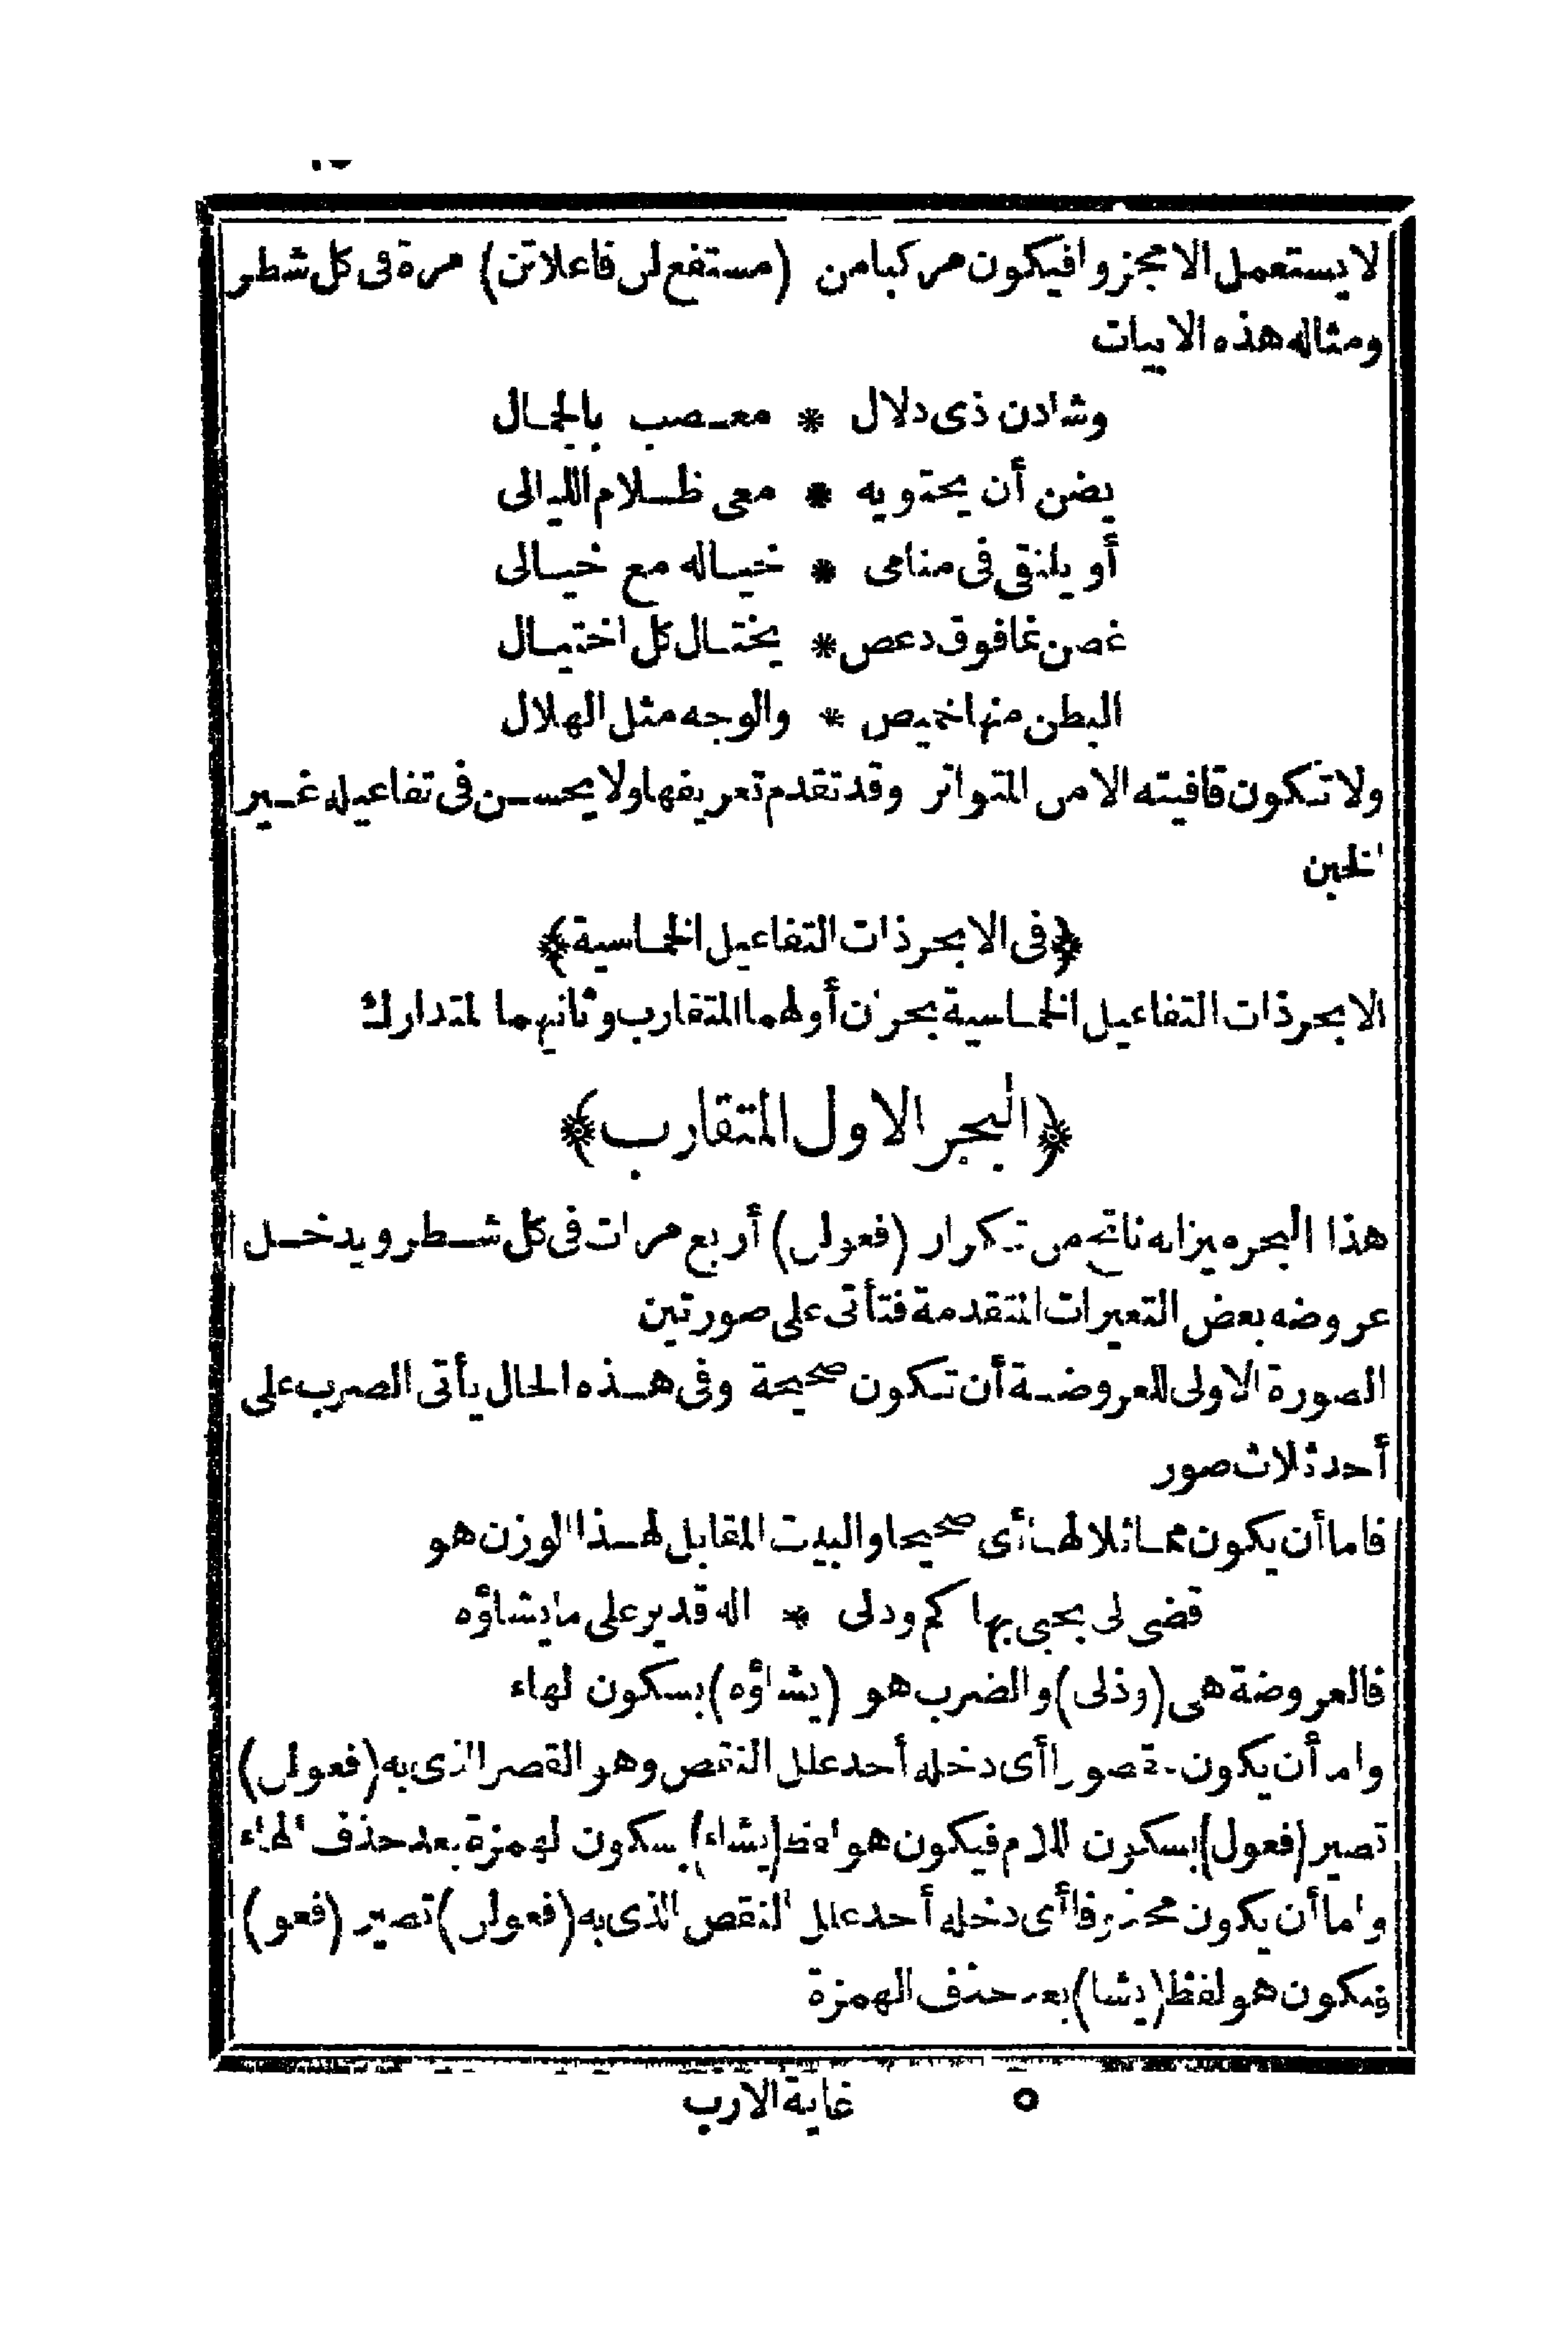 لا يستعمل الا مجزوا فيكون مركبا من (مستفع لن فاعلاتن) مرة فى كل شطر
ومثاله هذه الابيات
وشادن ذى دلال * معصب بالجمال
يضن أن يحتويه * معى ظلام الليالى
أو يلتقى فى منامى * خياله مع خيالى
غصن نما فوق دعص * يختال كل اختيال
البطن منها خميص * والوجه مثل الهلال
ولا تكون قافيته الا من المتواتر وقد تقدم تعريفها ولا يحسن فى تفاعيله غير
الخبن
﴿فى الابحر ذات التفاعيل الخماسية﴾
الابحر ذات التفاعيل الخماسية بحران أولهما المتقارب وثانيهما المتدارك
﴿البحر الاول المتقارب﴾
هذا البحر ميزانه ناتج من تكرار (فعولن) أربع مرات فى كل شطر ويدخل
عروضه بعض التغيرات المتقدمة فتأتى على صورتين
الصورة الاولى للعروضة أن تكون صحيحة وفى هذه الحال يأتى الضرب على
أحد ثلاث صور
فاما أن يكون مماثلا لها أى صحيحا والبيت المقابل لهذا الوزن هو
قضى لى بحبى بها كم وذلى * اله قدير على ما يشاؤه
فالعروضة هى (وذلى) والضرب هو (يشاؤه) بسكون الهاء
واما أن يكون مقصورا أى دخله أحد علل النقص وهو القصر الذى به (فعولن)
تصير (فعول) بسكون اللام فيكون هو لفظ (يشاء) بسكون الهمزة بعد حذف الهاء
واما أن يكون محذوفا أى دخله أحد علل النقص الذى به (فعولن) تصير (فعو)
فيكون هو لفظ (يشا) بعد حذف الهمزة
٥ غاية الارب